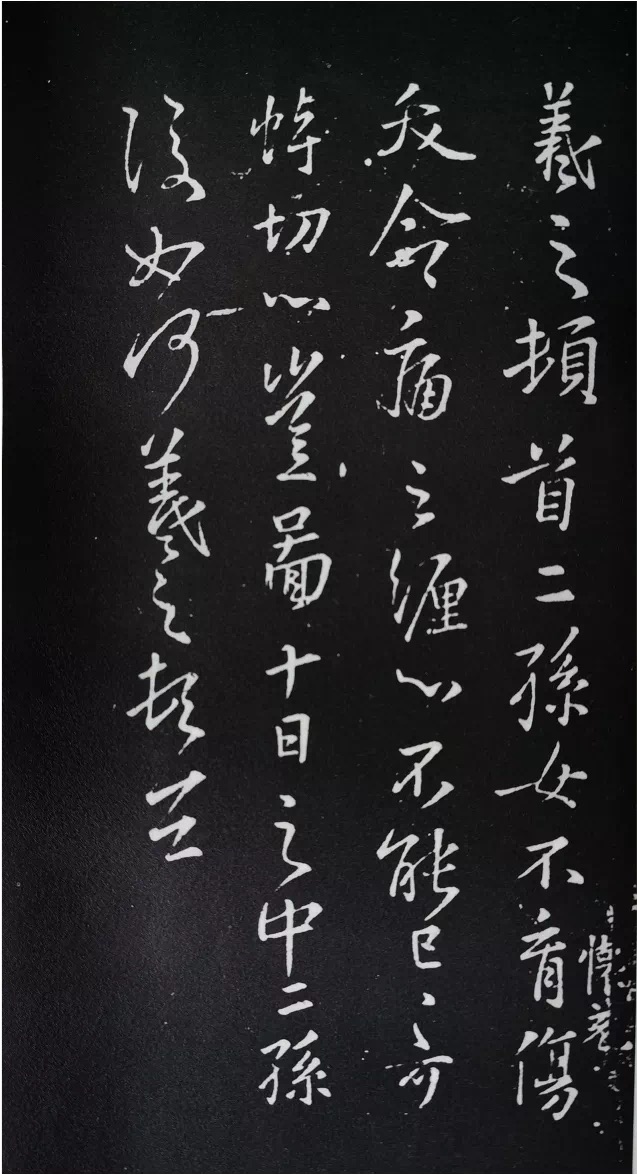 羲之頓首二孫女不育傷
夭命痛之纏心不能已々可
悼切心豈圖十日之中二孫
復如何羲之頓首